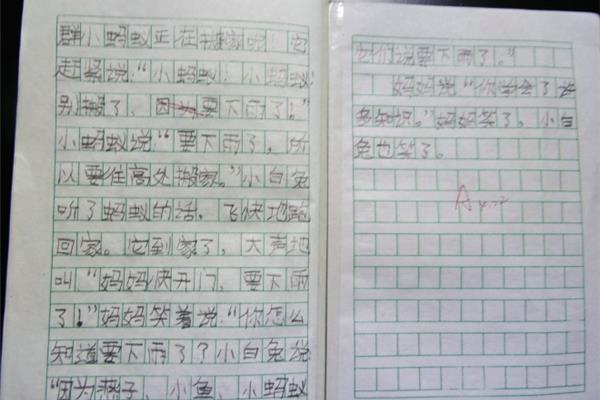 群小蚂蚁正在搬家呢！它
赶紧说：“小蚂蚁！小蚂蚁！
别搬了，因为要下雨了！”
小蚂蚁说：“要下雨了，所
以要往高处搬家。”小白兔
听了蚂蚁的话，飞快地跑
回家。它到家了，大声地
叫“妈妈快开门，要下雨
了！”妈妈笑着说：“你怎么
知道要下雨了？小白兔说：
“因为燕子、小鱼、小蚂蚁
它们说要下雨了。”
妈妈说“你学会了许
多知识。”妈妈笑了。小白
兔也笑了。
A